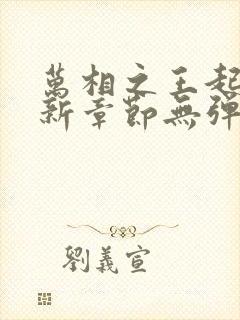 萬相之王起
新章節無彈
劉義宣